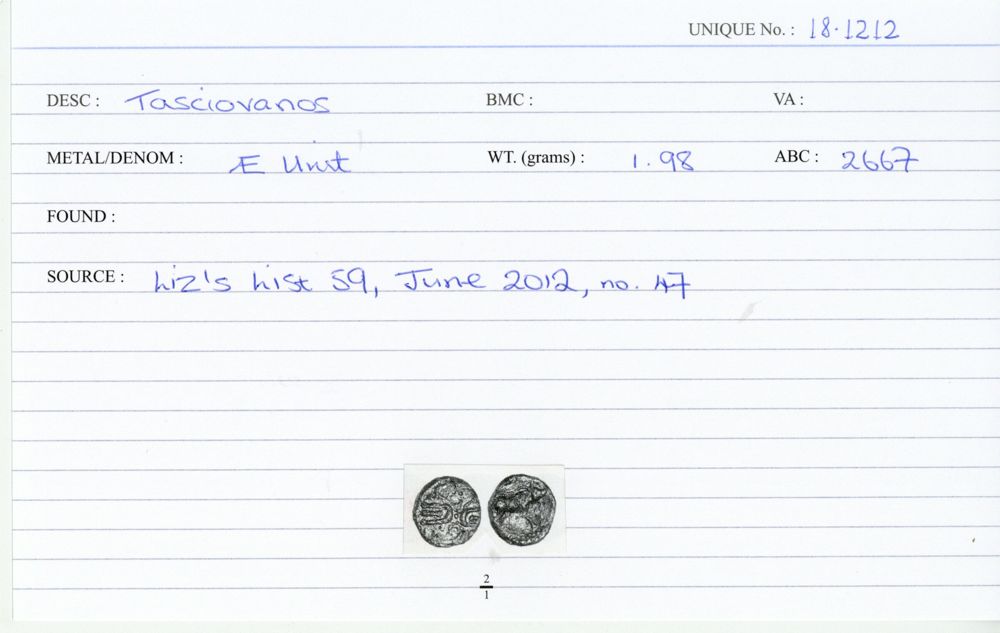 UNIQUE No. : 18.1212
DESC : Tasciovanos BMC : VA :
METAL/DENOM : Æ Unit WT. (grams) : 1.98 ABC : 2667
FOUND :
SOURCE : Liz's List 59, June 2012, no. 47
2
1